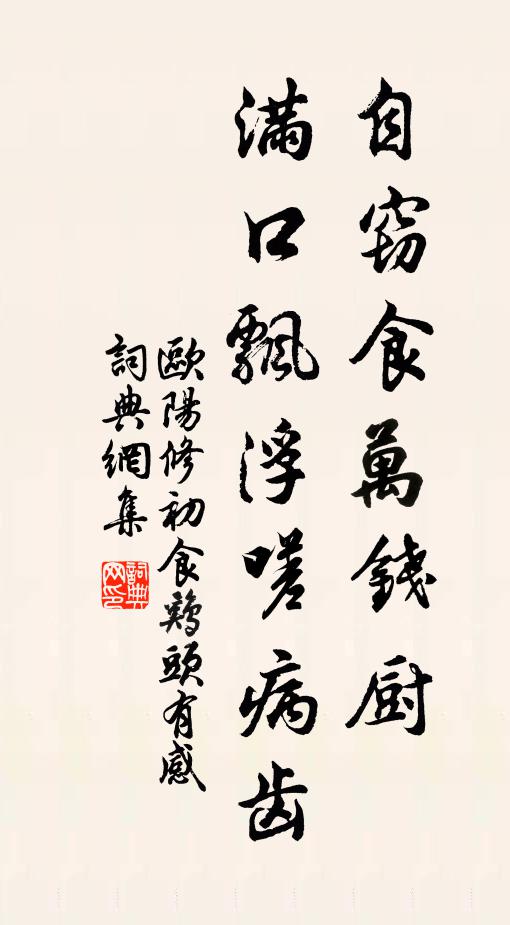 自窃食萬錢厨
滿口飄浮嗟病齿
歐陽修初食鷄頭有感
詞典網集
詞典网印